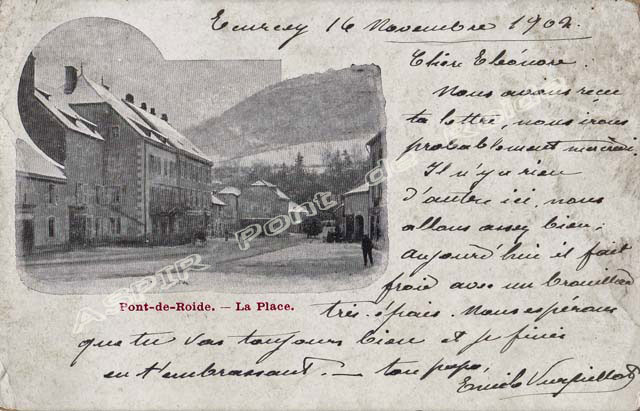 Ecurcey 16 Novembre 1902
Chère Eléonore.
Nous avons reçu
ta lettre, nous irons
probablement mercredi.
Il n'y a rien
d'autre ici, nous
allons assez bien;
aujourd'hui il fait
froid avec un brouillard
très-épais. Nous espérons
que tu vas toujours bien et je finis
en t'embrassant. — ton papa,
Emile Vurpillot
Pont-de-Roide. — La Place.
ASPIR Pont de Roide